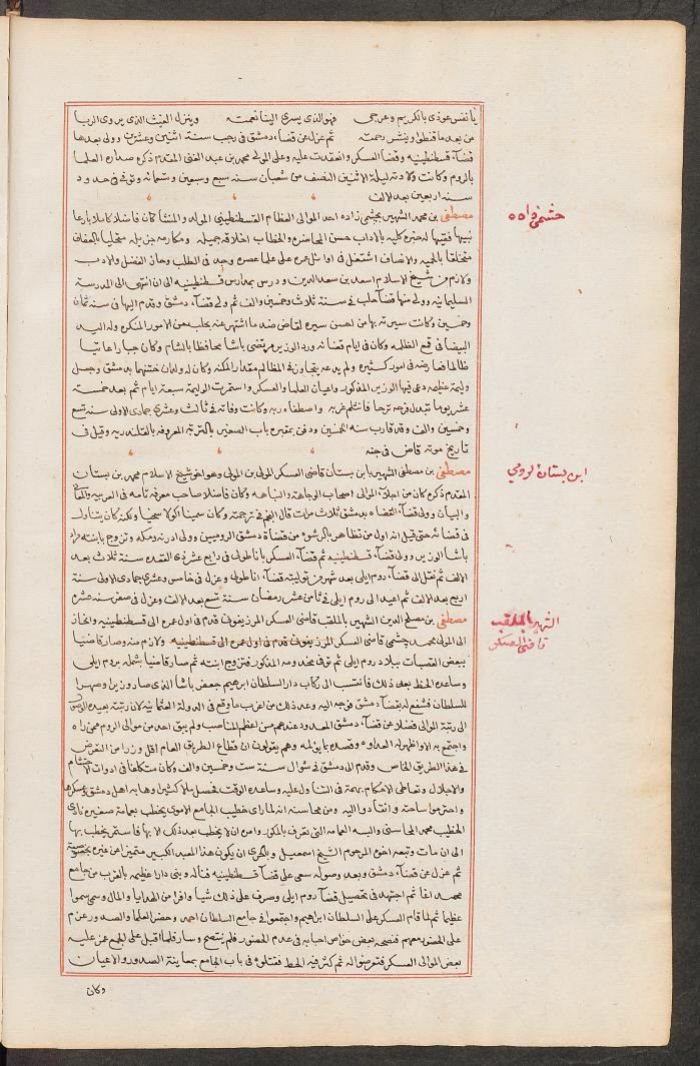 يا نفس عوذي بالكريم وعرجي فهو الذي يسري الينا نعمته وينزل الغيث الذي يروي الربا
من بعد ما قنطوا وينشر رحمته ثم عزل عن قضاء دمشق في رجب سنة اثنين وعشرين وولى بعدها
قضاء قسطنطينيه وقضاء العسكر وانعقدت عليه وعلى المولى محمد بن عبد الغنى المقدم ذكره صدارة العلما
بالروم وكانت ولادته ليلة الاثنين النصف من شعبان سنه سبع وسبعين وتسعمائة وتوفي في حدود
سنه اربعين بعد الالف
مصطفى بن محمد الشهير بجشمي زاده احد الموالى العظام القسطنطيني المولد والمنشا كان فاضلا كاملا بارعا
نبيها فقيها له خبرة كليه بالاداب حسن المحاضره والخطاب اخلاقه جميله ومكارمه جزيله متحليا بالعفاف
متخلقا بالحميه والانصاف اشتغل في اوائل عمره على علما عصره وجد في الطلب وحاز الفضل والادب
ولازم من شيخ الاسلام اسعد بن سعد الدين ودرس بمدارس قسطنطينيه الى ان انتهى الى المدرسة
السليمانيه وولى منها قضاء حلب في سنة ثلاث وخمسين والف ثم ولى قضاء دمشق وقدم اليها في سنة ثمان
وخمسين وكانت سيرته بها من احسن سيره لقاض ضد ما اشتهر عنه بحلب من الامور المنكره وله اليد
البيضا في قمع الظلمه وكان في ايام قضائه ورد الوزير مرتضى باشا محافظا بالشام وكان جبارا عاتيا
ظالما فعارضه في امور كثيره ولم يدعه يتجاوز في المظالم مقدار المكنه وكان له ولدان ختنهما بدمشق وجعل
وليمة عظيمه دعى فيها الوزير المذكور واعيان العلما والعسكر واستمرت الوليمة سبعة ايام ثم بعد خمسة
عشر يوما تبدل فرحه ترحا فانثلم غربه واصطفاه ربه وكانت وفاته في ثالث وعشري جمادى الاولى سنه تسع
وخمسين والف وقد قارب سنه الخمسين ودفن بمقبرة باب الصغير بالتربة المعروفه بالقلندريه وقيل في
تاريخ موته قاض في جنه
مصطفى بن مصطفى الشهير بابن بستان قاضى العسكر المولى بن المولى وهو اخو شيخ الاسلام محمد بن بستان
المقدم ذكره كان من اجلاء الموالى اصحاب الوجاهة والنباهه وكان فاضلا صاحب معرفة تامه في العربيه والمعانى
والبيان وولى قضاء القضاه بدمشق ثلاث مرات قال النجم في ترجمته وكان سمينا اكولا سخيا ولكنه كان يتناول
في قضائه حتى قيل انه اول من تظاهر باكل شيء من قضاة دمشق الروميين وولى ادرنه ومكه وتزوج بابنة
باشا الوزير وولى قضاء قسطنطينيه ثم قضاء العسكر باناطولى في رابع عشر ذى القعده سنة ثلاث بعد
الالف ثم نقل الى قضاء روم ايلى بعد شهر من توليته قضاء اناطولى وعزل في خامس وعشري جمادى الاولى سنة
اربع بعد الالف ثم اعيد الى روم ايلى في ثامن عشر رمضان سنة تسع بعد الالف وعزل في صفر سنه عشره
مصطفى بن مصلح الدين الشهير بالملقب قاضى العسكر المرزيفونى قدم في اول عمره الى قسطنطينيه وانحاز
الى المولى محمد جشمي قاضى العسكر المرزيفونى قدم في اول عمره الى قسطنطينيه ولازم منه وصار قاضيا
ببعض القصبات ببلاد روم ايلى ثم توفى مخدومه المذكور فتزوج ابنته ثم صار قاضيا بشمله بروم ايلى
وساعده الحظ بعد ذلك فانتسب الى ركاب دار السلطان ابراهيم جعفر باشا الذى صار وزيرا وصهرا
للسلطان فشفع له بقضاء دمشق فوجه اليه وعد ذلك من اغرب ما وقع في الدولة العثمانيه لان رتبته بعيدة
الى رتبة الموالى فضلا عن قضاء دمشق المعدود عندهم من اعظم المناصب ولم يبق احد من موالى الروم ممن راه
واجتمع به الا واظهر له العداوه وقصده بايؤلمه وهم يقولون ان قطاع الطريق العام اقل وزرا من التعرض
في هذا الطريق الخاص وقدم الى دمشق في شوال سنة ست وخمسين والف وكان متكلفا في ادوات الاحتشام
والاجلال وتعاطى الاحكام بهمة في التناول عليه وساعده الوقت فحصل مالا كثيرا وهابه اهل دمشق وعسكرها
واحترموا ساحته وانقادوا اليه ومن محاسنه انه لما راى خطيب الجامع الاموى يخطب بعمامة صغيره نادى
الخطيب محمد المحاسنى والبسه العمامه التى تعرف بالمكور وامره ان لا يخطب بعد ذلك الا بها فاستمر يخطب بها
الى ان مات وتبعه اخوه المرحوم الشيخ اسمعيل وبالحرى ان يكون هذا المعبد الكبير متميزا عن غيره بخصوصية
ثم عزل عن قضاء دمشق وبعد وصوله سعى على قضاء قسطنطينيه فناله وبنى دارا عظيمه بالقرب من جامع
محمد اغا ثم اجتهد في تحصيل قضاء روم ايلى وصرف على ذلك شيا وافرا من الهدايا والمال وسمى سموا
عظيما ثم لما قام العسكر على السلطان ابراهيم واجتمعوا في جامع السلطان احمد وحضر العلما والصدور عزم
على الحضور معهم فنصحه بعض خواص احبابه في عدم الحضور فلم ينتصح وسار فلما اقبل على الجمع غمز عليه
بعض الموالى العسكر فتعرضوا له ثم كثر فيه الخبط فقتلوه في باب الجامع بمعاينة الصدور والاعيان
وكان
جشمي زاده
ابن بستان الرومي
الشهير بالملقب
قاضى العسكر